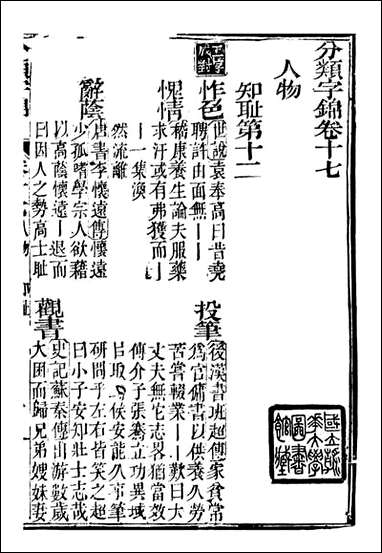 分類字錦卷十七
人物
知耻第十二
正事
成對
怍色
世說袁奉高曰昔堯
聘許由面無丨丨
投筆
後漢書班超傳家貧常
爲官傭書以供養久勞
苦嘗輟業丨丨歎曰大
丈夫無它志略猶當效
傅介子張騫立功異域
以取封侯安能久事筆
研間乎左右皆笑之超
曰小子安知壯士志哉
愧情
嵇康養生論夫服藥
求汗或有弗獲而丨
丨一集渙
然流離
辭蔭
唐書李懷遠傳懷遠
少孤嗜學宗人欲藉
以高蔭懷遠丨退而
曰因人之勢高士耻
觀書
史記蘇秦傳出游數歲
大困而歸兄弟嫂妹妻
國立
大學
圖書
館藏